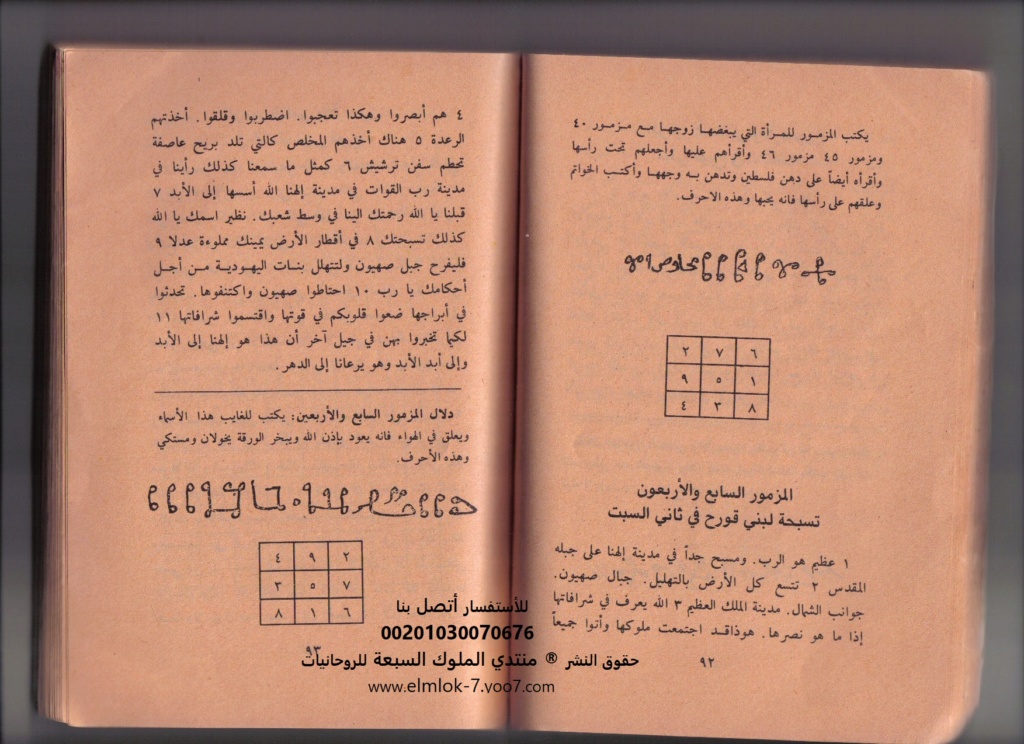 يكتب المزمور للمرأة التي يبغضها زوجها مع مزمور ٤٠
ومزمور ٤٥ مزمور ٤٦ وأقرأهم عليها وأجعلهم تحت رأسها
وأقرأه أيضاً على دهن فلسطين وتدهن به وجهها وأكتب الخواتم
وعلقهم على رأسها فانه يحبها وهذه الاحرف.
٢ ٧ ٦
٩ ٥ ١
٤ ٣ ٨
المزمور السابع والأربعون
تسبحة لبني قورح في ثاني السبت
١ عظيم هو الرب. ومسبح جداً في مدينة إلهنا على جبله
المقدس ٢ تتسع كل الأرض بالتهليل. جبال صهيون.
جوانب الشمال. مدينة الملك العظيم ٣ الله يعرف في شرافاتها
إذا ما هو نصرها. هوذاقد اجتمعت ملوكها وأتوا جميعاً
٩٢
٤ هم أبصروا وهكذا تعجبوا. اضطربوا وقلقوا. أخذتهم
الرعدة ٥ هناك أخذهم المخلص كالتي تلد بريح عاصفة
تحطم سفن ترشيش ٦ كمثل ما سمعنا كذلك رأينا في
مدينة رب القوات في مدينة إلهنا الله أسسها إلى الأبد ٧
قبلنا يا الله رحمتك الينا في وسط شعبك. نظير اسمك يا الله
كذلك تسبحتك ٨ في أقطار الأرض يمينك مملوءة عدلا ٩
فليفرح جبل صهيون ولتتهلل بنات اليهودية من أجل
أحكامك يا رب ١٠ احتاطوا صهيون واكتنفوها. تحدثوا
في أبراجها ضعوا قلوبكم في قوتها واقتسموا شرافاتها ١١
لكيما تخبروا بهن في جيل آخر أن هذا هو إلهنا إلى الأبد
وإلى أبد الأبد وهو يرعانا إلى الدهر.
دلال المزمور السابع والأربعين: يكتب للغايب هذا الأسماء
ويعلق في الهواء فانه يعود بإذن الله ويبخر الورقة يخولان ومستكي
وهذه الأحرف.
٤ ٩ ٢
٣ ٥ ٧
٨ ١ ٦
٩٣
للأستفسار أتصل بنا
00201030070676
حقوق النشر ® منتدي الملوك السبعة للروحانيات
www.elmlok-7.yoo7.com